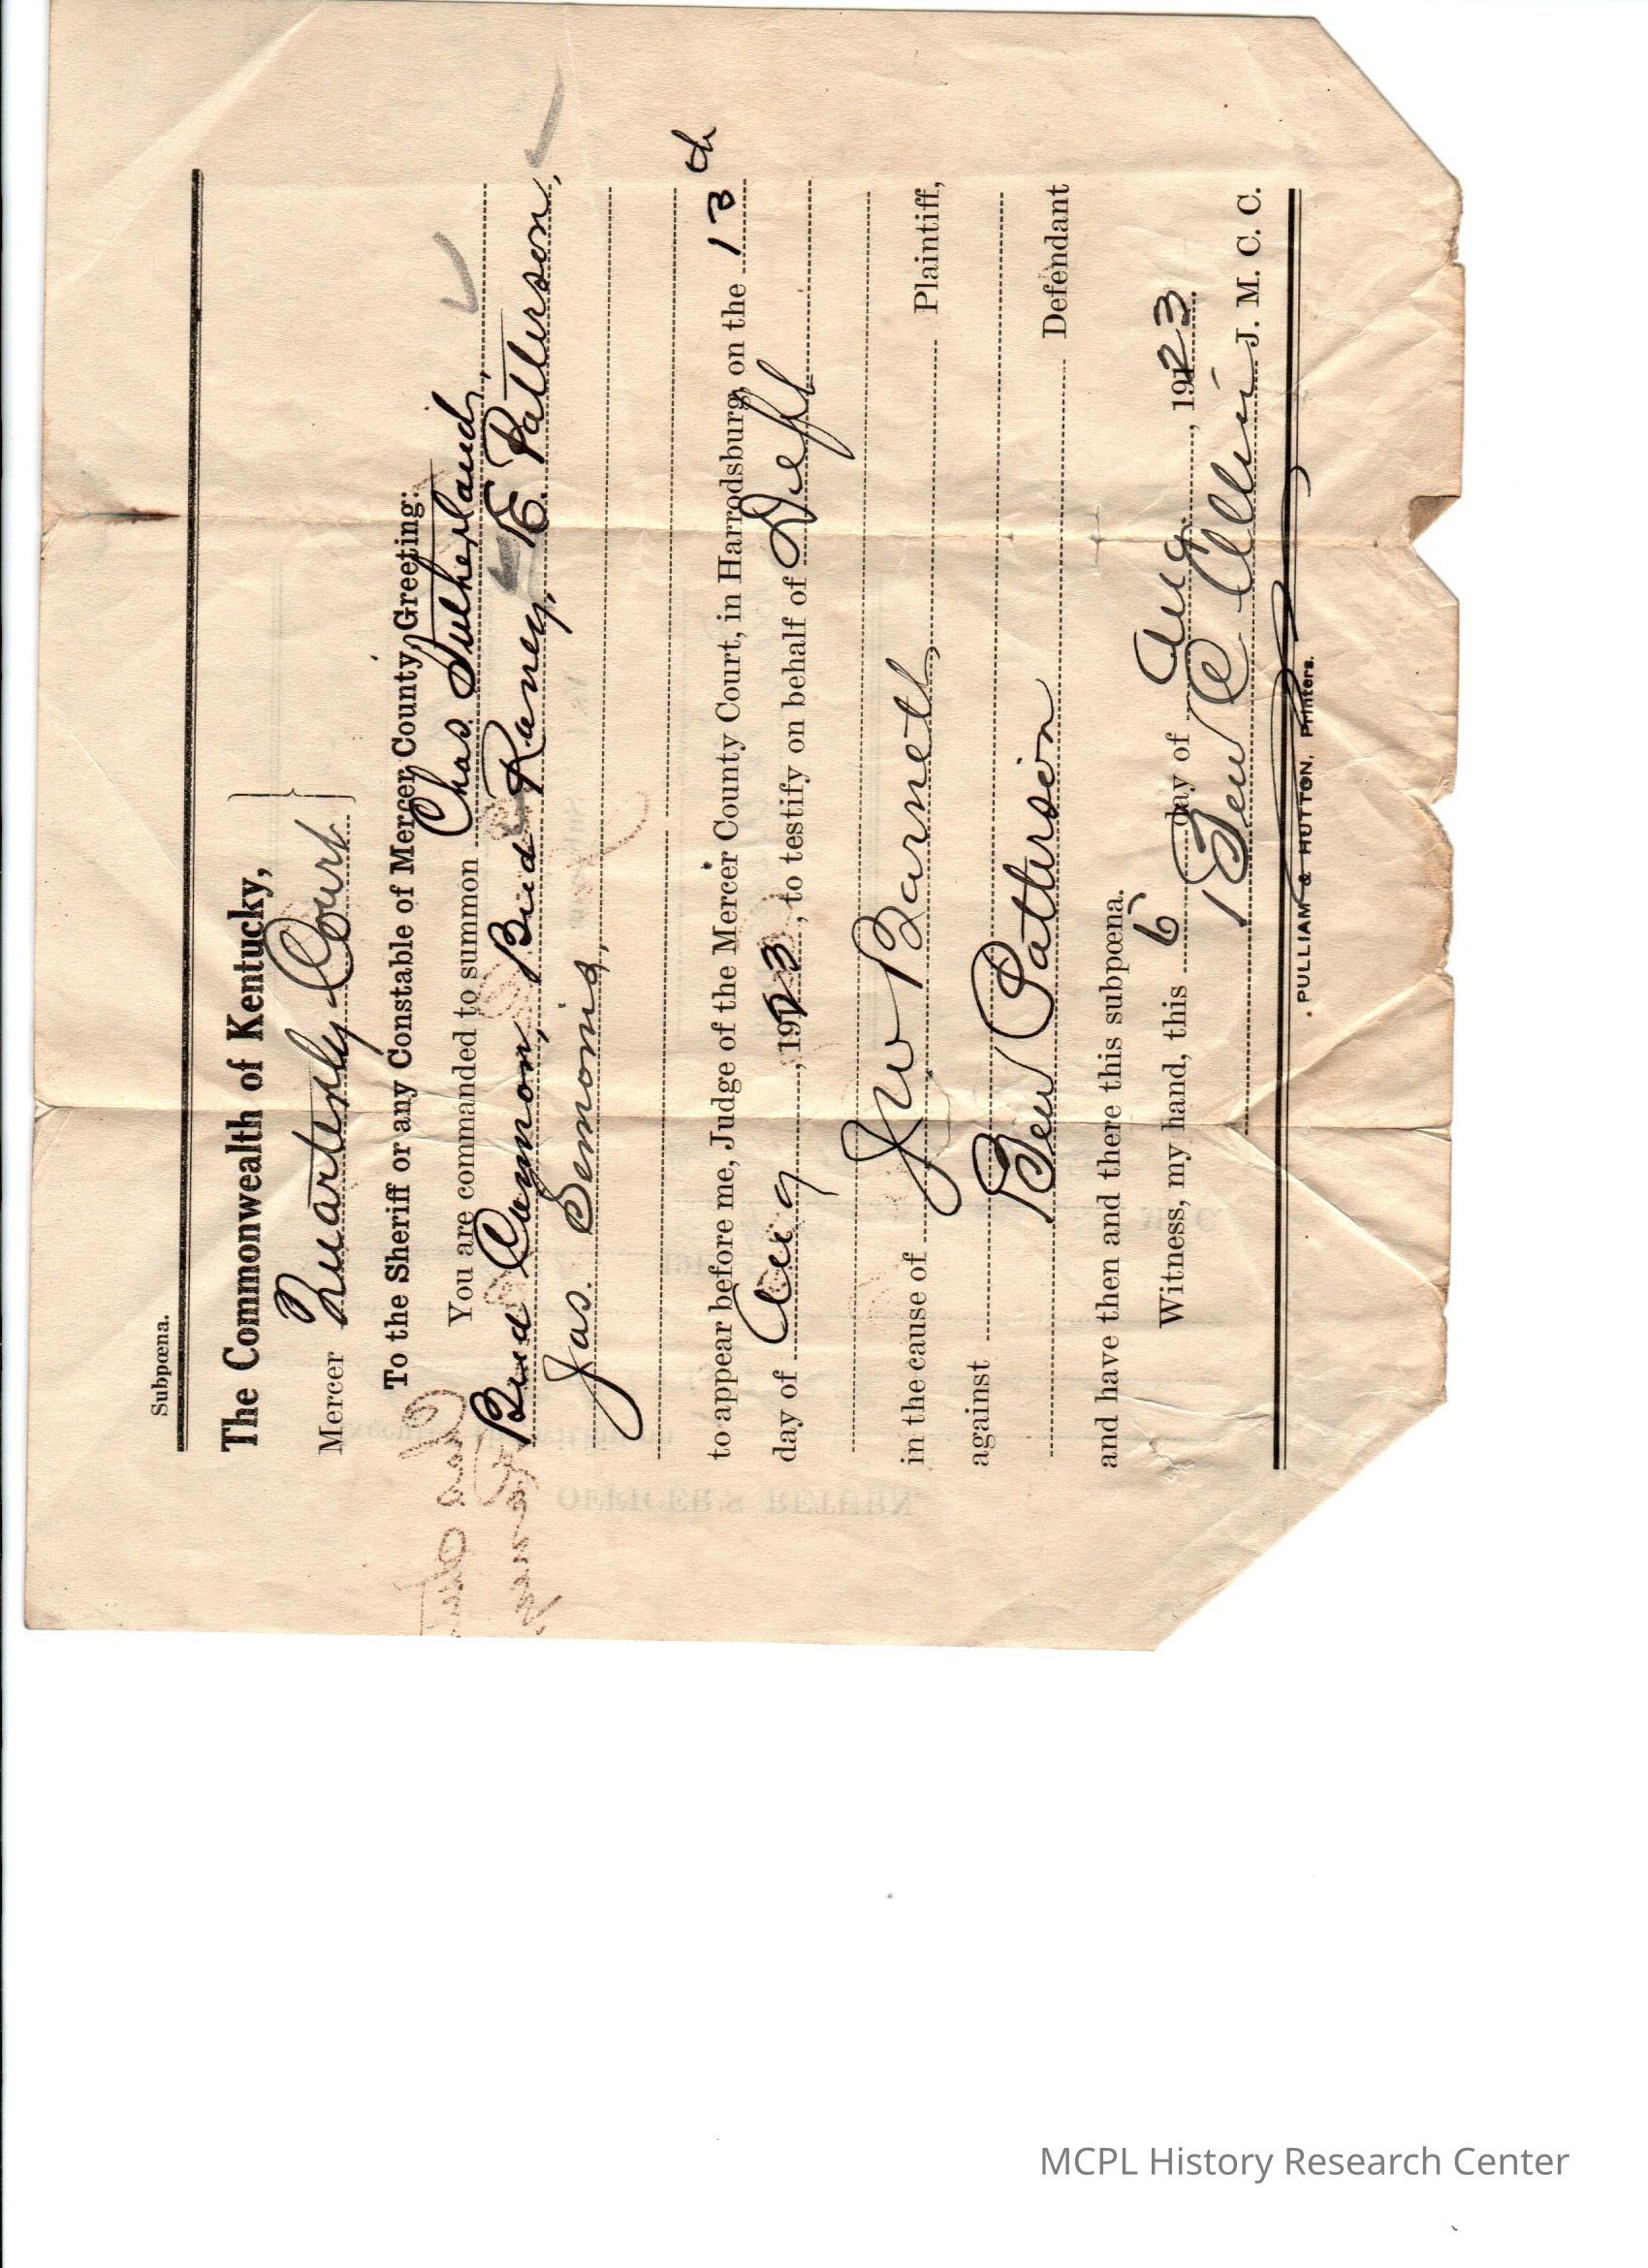 Subpœna.
The Commonwealth of Kentucky,
Mercer Quarterly Court
To the Sheriff or any Constable of Mercer County, Greeting:
You are commanded to summon Chas Sutherland,
Bud Bud Raney, E. Patterson,
Jas. Simonis,
to appear before me, Judge of the Mercer County Court, in Harrodsburg, on the 13th
day of Aug, 1923, to testify on behalf of Deft
in the cause of J W Barnett, Plaintiff,
against
Ben Patterson Defendant
and have then and there this subpœna.
Witness, my hand, this 6 day of Aug, 1923.
Ben C Allin J. M. C. C.
PULLIAM & HUTTON, Printers.
OFFICER'S RETURN
MCPL History Research Center